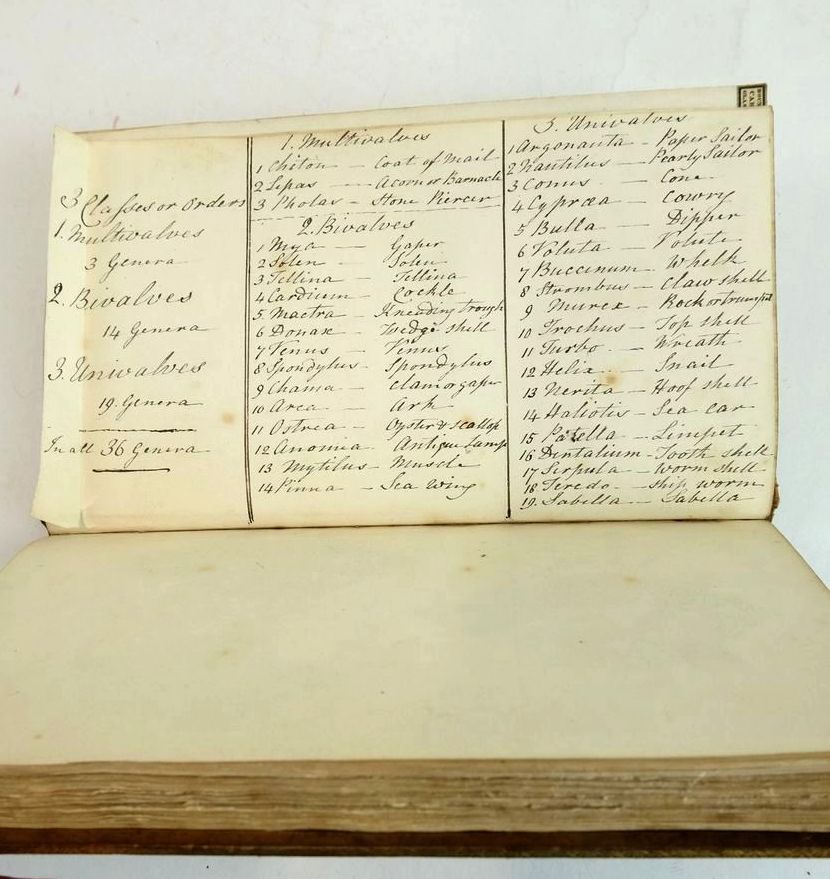 3 Classes or Orders
1. Multivalves
3 Genera
2. Bivalves
14 Genera
3. Univalves
19. Genera
In all 36 Genera
1. Multivalves
1 Chiton — Coat of Mail
2 Lepas — Acorn or Barnacle
3 Pholas — Stone Piercer
2. Bivalves
1 Mya — Gaper
2 Solen — Solen
3 Tellina — Tellina
4 Cardium — Cockle
5. Mactra — Kneading trough
6 Donax — Wedge shell
7 Venus — Venus
8 Spondylus — Spondylus
9 Chama — Clam or gaper
10 Arca — Ark
11 Ostrea — Oyster & scallop
12 Anomia Antique Lamp
13 Mytilus — Muscle
14 Pinna — Sea Wing
3. Univalves
1 Argonauta — Paper Sailor
2 Nautilus — Pearly Sailor
3 Conus — Cone
4 Cypræa — Cowry
5 Bulla — Dipper
6 Voluta — Volute
7 Buccinum — Whelk
8 Strombus — Claw shell
9 Murex — Rock or trumpet
10 Trochus — Top shell
11 Turbo — Wreath
12 Helix — Snail
13 Nerita — Hoof shell
14 Haliotis — Sea ear
15 Patella — Limpet
16 Dentalium — Tooth shell
17 Serpula — Worm shell
18 Teredo — ship worm
19. Sabella — Sabella